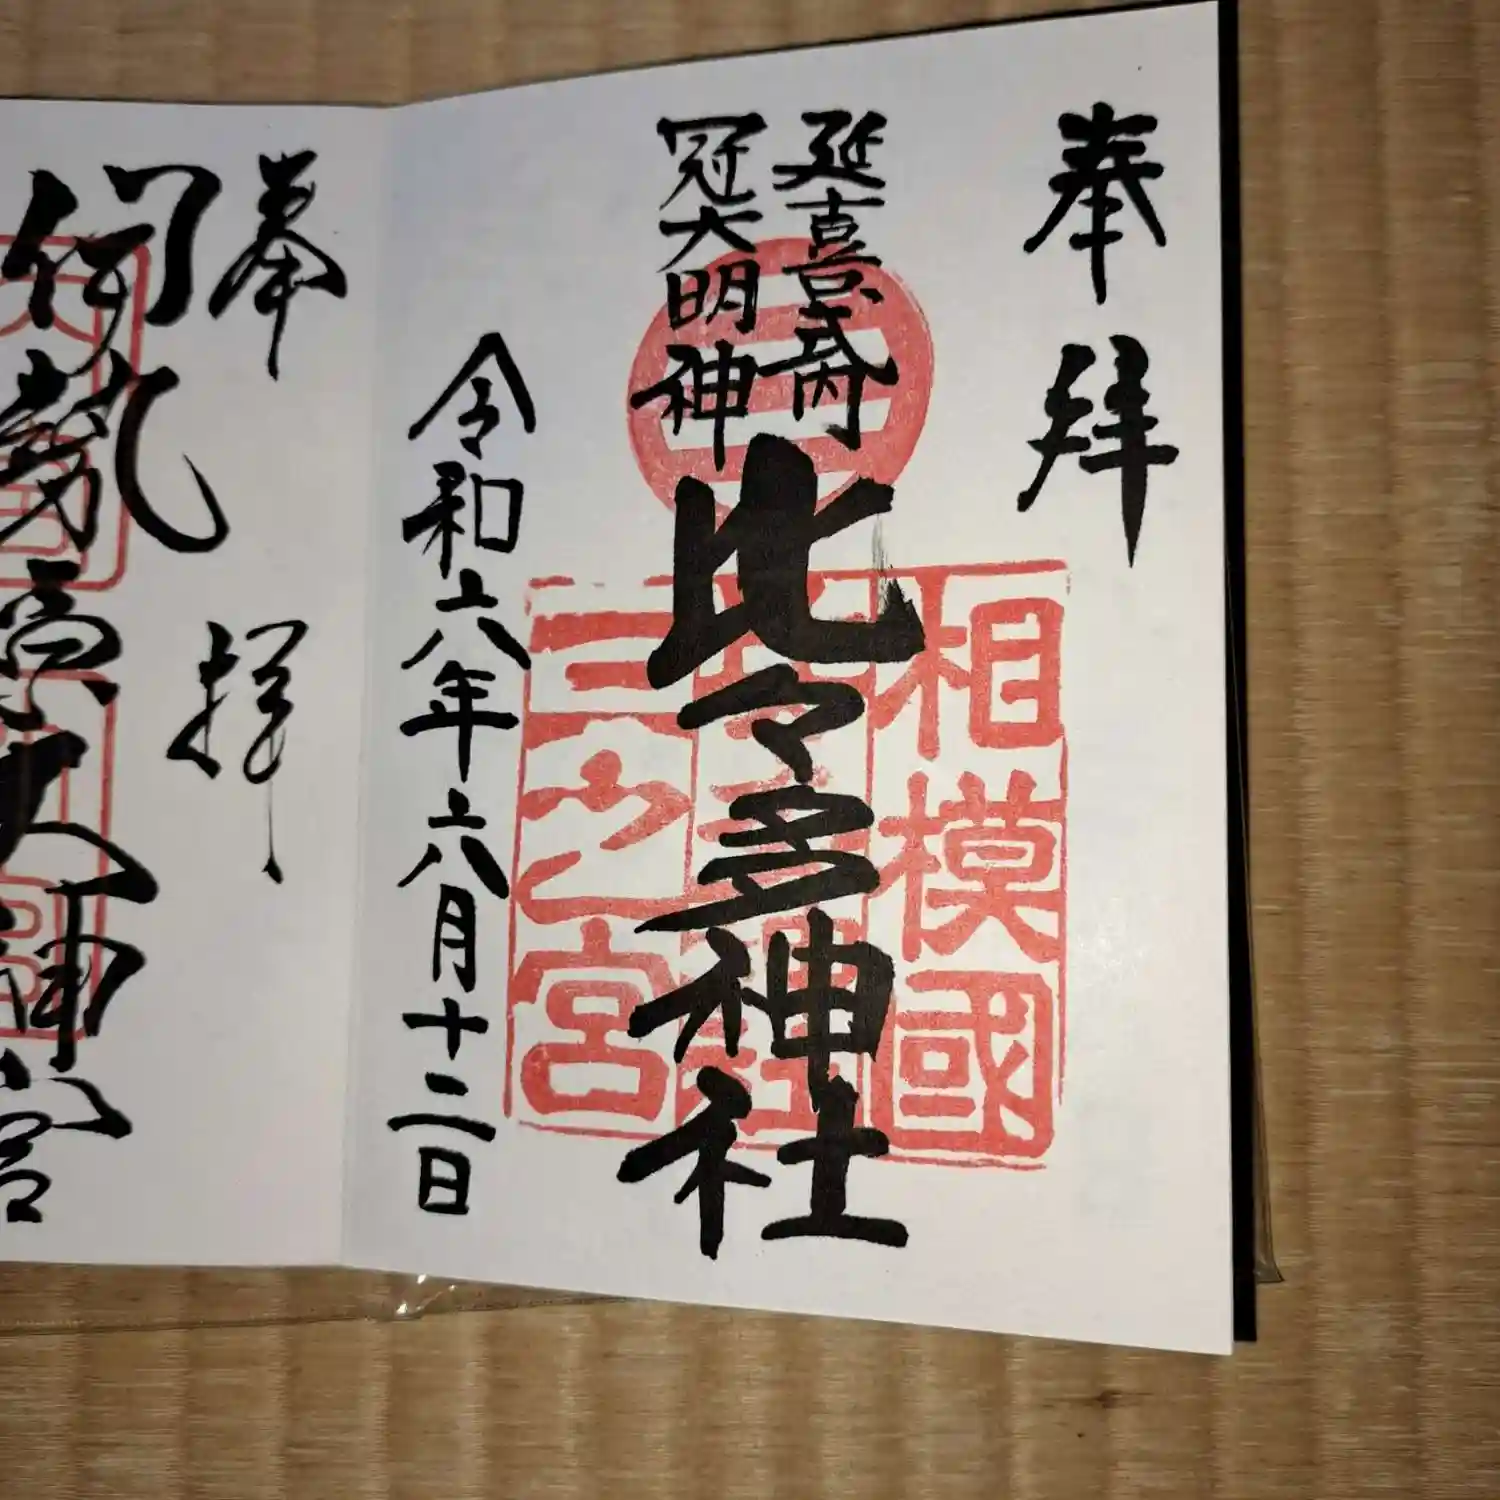 奉拝
延喜式内
冠大明神
比々多神社
相模國
三之宮
令和六年六月十二日
奉拝
伊勢原大神宮